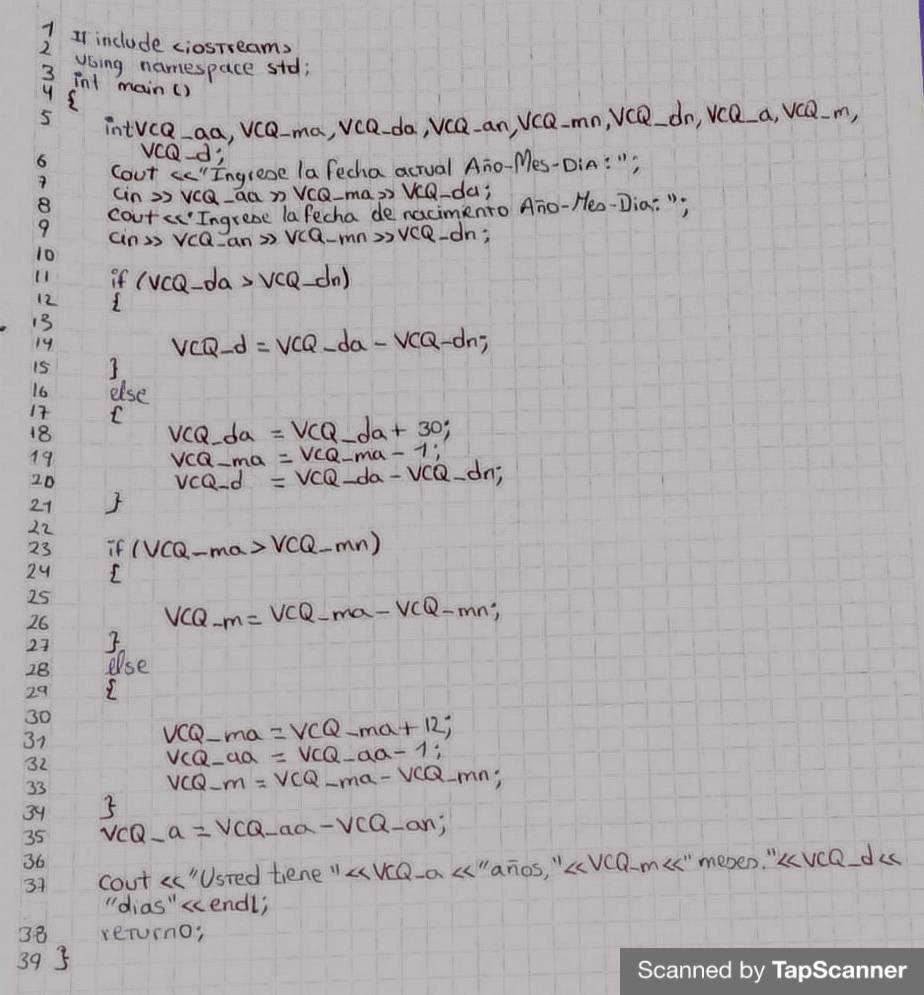 1 # include <iostream>
2 Using namespace std;
3 int main ()
4 {
5 int VCQ_aa, VCQ_ma, VCQ_da, VCQ_an, VCQ_mn, VCQ_dn, VCQ_a, VCQ_m,
VCQ_d;
6 Cout <<"Ingrese la fecha actual Año-Mes-Dia:";
7 Cin >> VCQ_aa >> VCQ_ma >> VCQ_da;
8 Cout <<"Ingrese la fecha de nacimento Año-Mes-Dia: ";
9 Cin >> VCQ_an >> VCQ_mn >> VCQ_dn;
10
11 if (VCQ_da > VCQ_dn)
12 {
13
14 VCQ_d = VCQ_da - VCQ_dn;
15 }
16 else
17 {
18 VCQ_da = VCQ_da + 30;
19 VCQ_ma = VCQ_ma - 1;
20 VCQ_d = VCQ_da - VCQ_dn;
21 }
22
23 if (VCQ_ma > VCQ_mn)
24 {
25
26 VCQ_m = VCQ_ma - VCQ_mn;
27 }
28 else
29 {
30
31 VCQ_ma = VCQ_ma + 12;
32 VCQ_aa = VCQ_aa - 1;
33 VCQ_m = VCQ_ma - VCQ_mn;
34 }
35 VCQ_a = VCQ_aa - VCQ_an;
36
37 Cout <<"Usted tiene "<<VCQ_a <<"años,"<<VCQ_m<<"meses."<<VCQ_d<<
"dias"<<endl;
38 return0;
39 }
Scanned by TapScanner